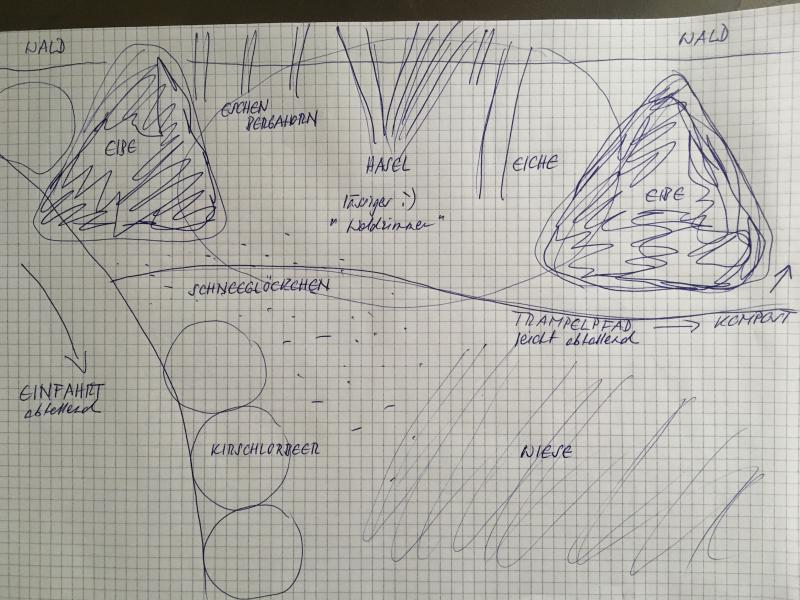 WALD
WALD
ESCHEN
BERGAHORN
EIBE
HASEL
EICHE
EIBE
:)
"Waldzimmer"
SCHNEEGLÖCKCHEN
TRAMPELPFAD → KOMPOST
leicht abfallend
EINFAHRT
abfallend
KIRSCHLORBEER
WIESE